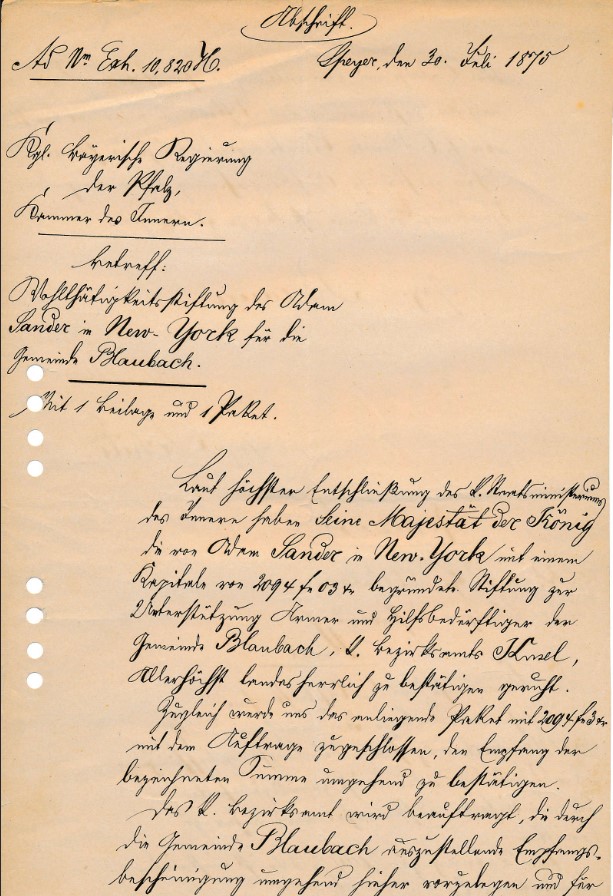 Abschrift.
Ad Nm Exh. 10,820 H.
Speyer, den 20. Juli 1875
Kgl. bayerische Regierung
der Pfalz,
Kammer des Innern.
betreff:
Wohlthätigkeitsstiftung des Adam
Sander in New-York für die
Gemeinde Blaubach.
Mit 1 Beilage und 1 Paket.
Laut höchster Entschließung des k. Staatsministeriums
des Innern haben Seine Majestät der König
die von Adam Sander in New-York mit einem
Kapitale von 2094 fl 03 kr begründete Stiftung zur
Unterstützung Armer und Hilfsbedürftiger der
Gemeinde Blaubach, k. Bezirksamts Kusel,
Allerhöchst landesherrlich zu bestätigen geruht.
Zugleich wurde uns das anliegende Paket mit 2094 fl 3 kr
mit dem Auftrage zugeschlossen, den Empfang der
bezeichneten Summe umgehend zu bestätigen.
Das k. Bezirksamt wird beauftragt, die durch
die Gemeinde Blaubach auszustellende Empfangs-
bescheinigung umgehend hieher vorzulegen und für